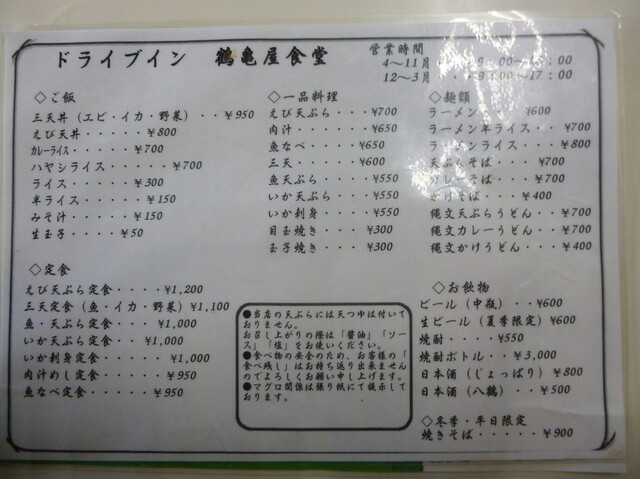 ドライブイン 鶴亀屋食堂
営業時間
4～11月 9:00～18:00
12～3月 ・・・9:00～17:00
◇ご飯
三天丼（エビ・イカ・野菜）・・¥950
えび天丼・・・・・¥800
カレーライス・・・・・¥700
ハヤシライス・・・・・¥700
ライス・・・・・¥300
半ライス・・・・・¥150
みそ汁・・・・・¥150
生玉子・・・・¥50
◇定食
えび天ぷら定食・・・・¥1,200
三天定食（魚・イカ・野菜）¥1,100
魚・天ぷら定食・・・¥1,000
いか天ぷら定食・・¥1,000
いか刺身定食・・・・¥1,000
肉汁めし定食・・・・¥950
魚なべ定食・・・・¥950
◇一品料理
えび天ぷら・・・¥700
肉汁・・・・・¥650
魚なべ・・・・¥650
三天・・・・¥600
魚天ぷら・・・・¥550
いか天ぷら・・・¥550
いか刺身・・・・¥550
目玉焼き・・・¥300
玉子焼き・・・¥300
●当店の天ぷらには天つゆは付いて
おりません。
お召し上がりの際は「醤油」「ソー
ス」「塩」をお使いください。
●食べ物の安全のため、お客様の「
食べ残し」はお持ち返り出来ません
のでよろしくお願い申し上げます。
●マグロ関係は張り紙にて提示して
おります。
◇麺類
ラーメン ¥600
ラーメン半ライス・・¥700
ラーメンライス ¥800
天ぷらそば・・¥700
カレーそば・・・¥700
かけそば・・・¥400
縄文天ぷらうどん・・¥700
縄文カレーうどん・・¥700
縄文かけうどん・・・¥400
◇お飲物
ビール（中瓶）・・¥600
生ビール（夏季限定）¥600
焼酎・・・・¥550
焼酎ボトル・・¥3,000
日本酒（じょっぱり）¥800
日本酒（八鶴）・・¥500
◇冬季・平日限定
焼きそば・・・・・¥900